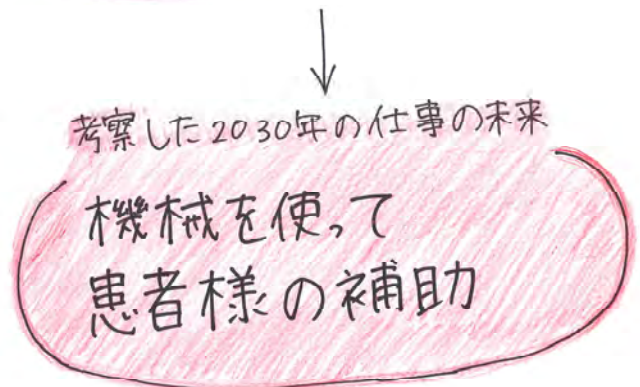 考察した2030年の仕事の未来
機械を使って
患者様の補助